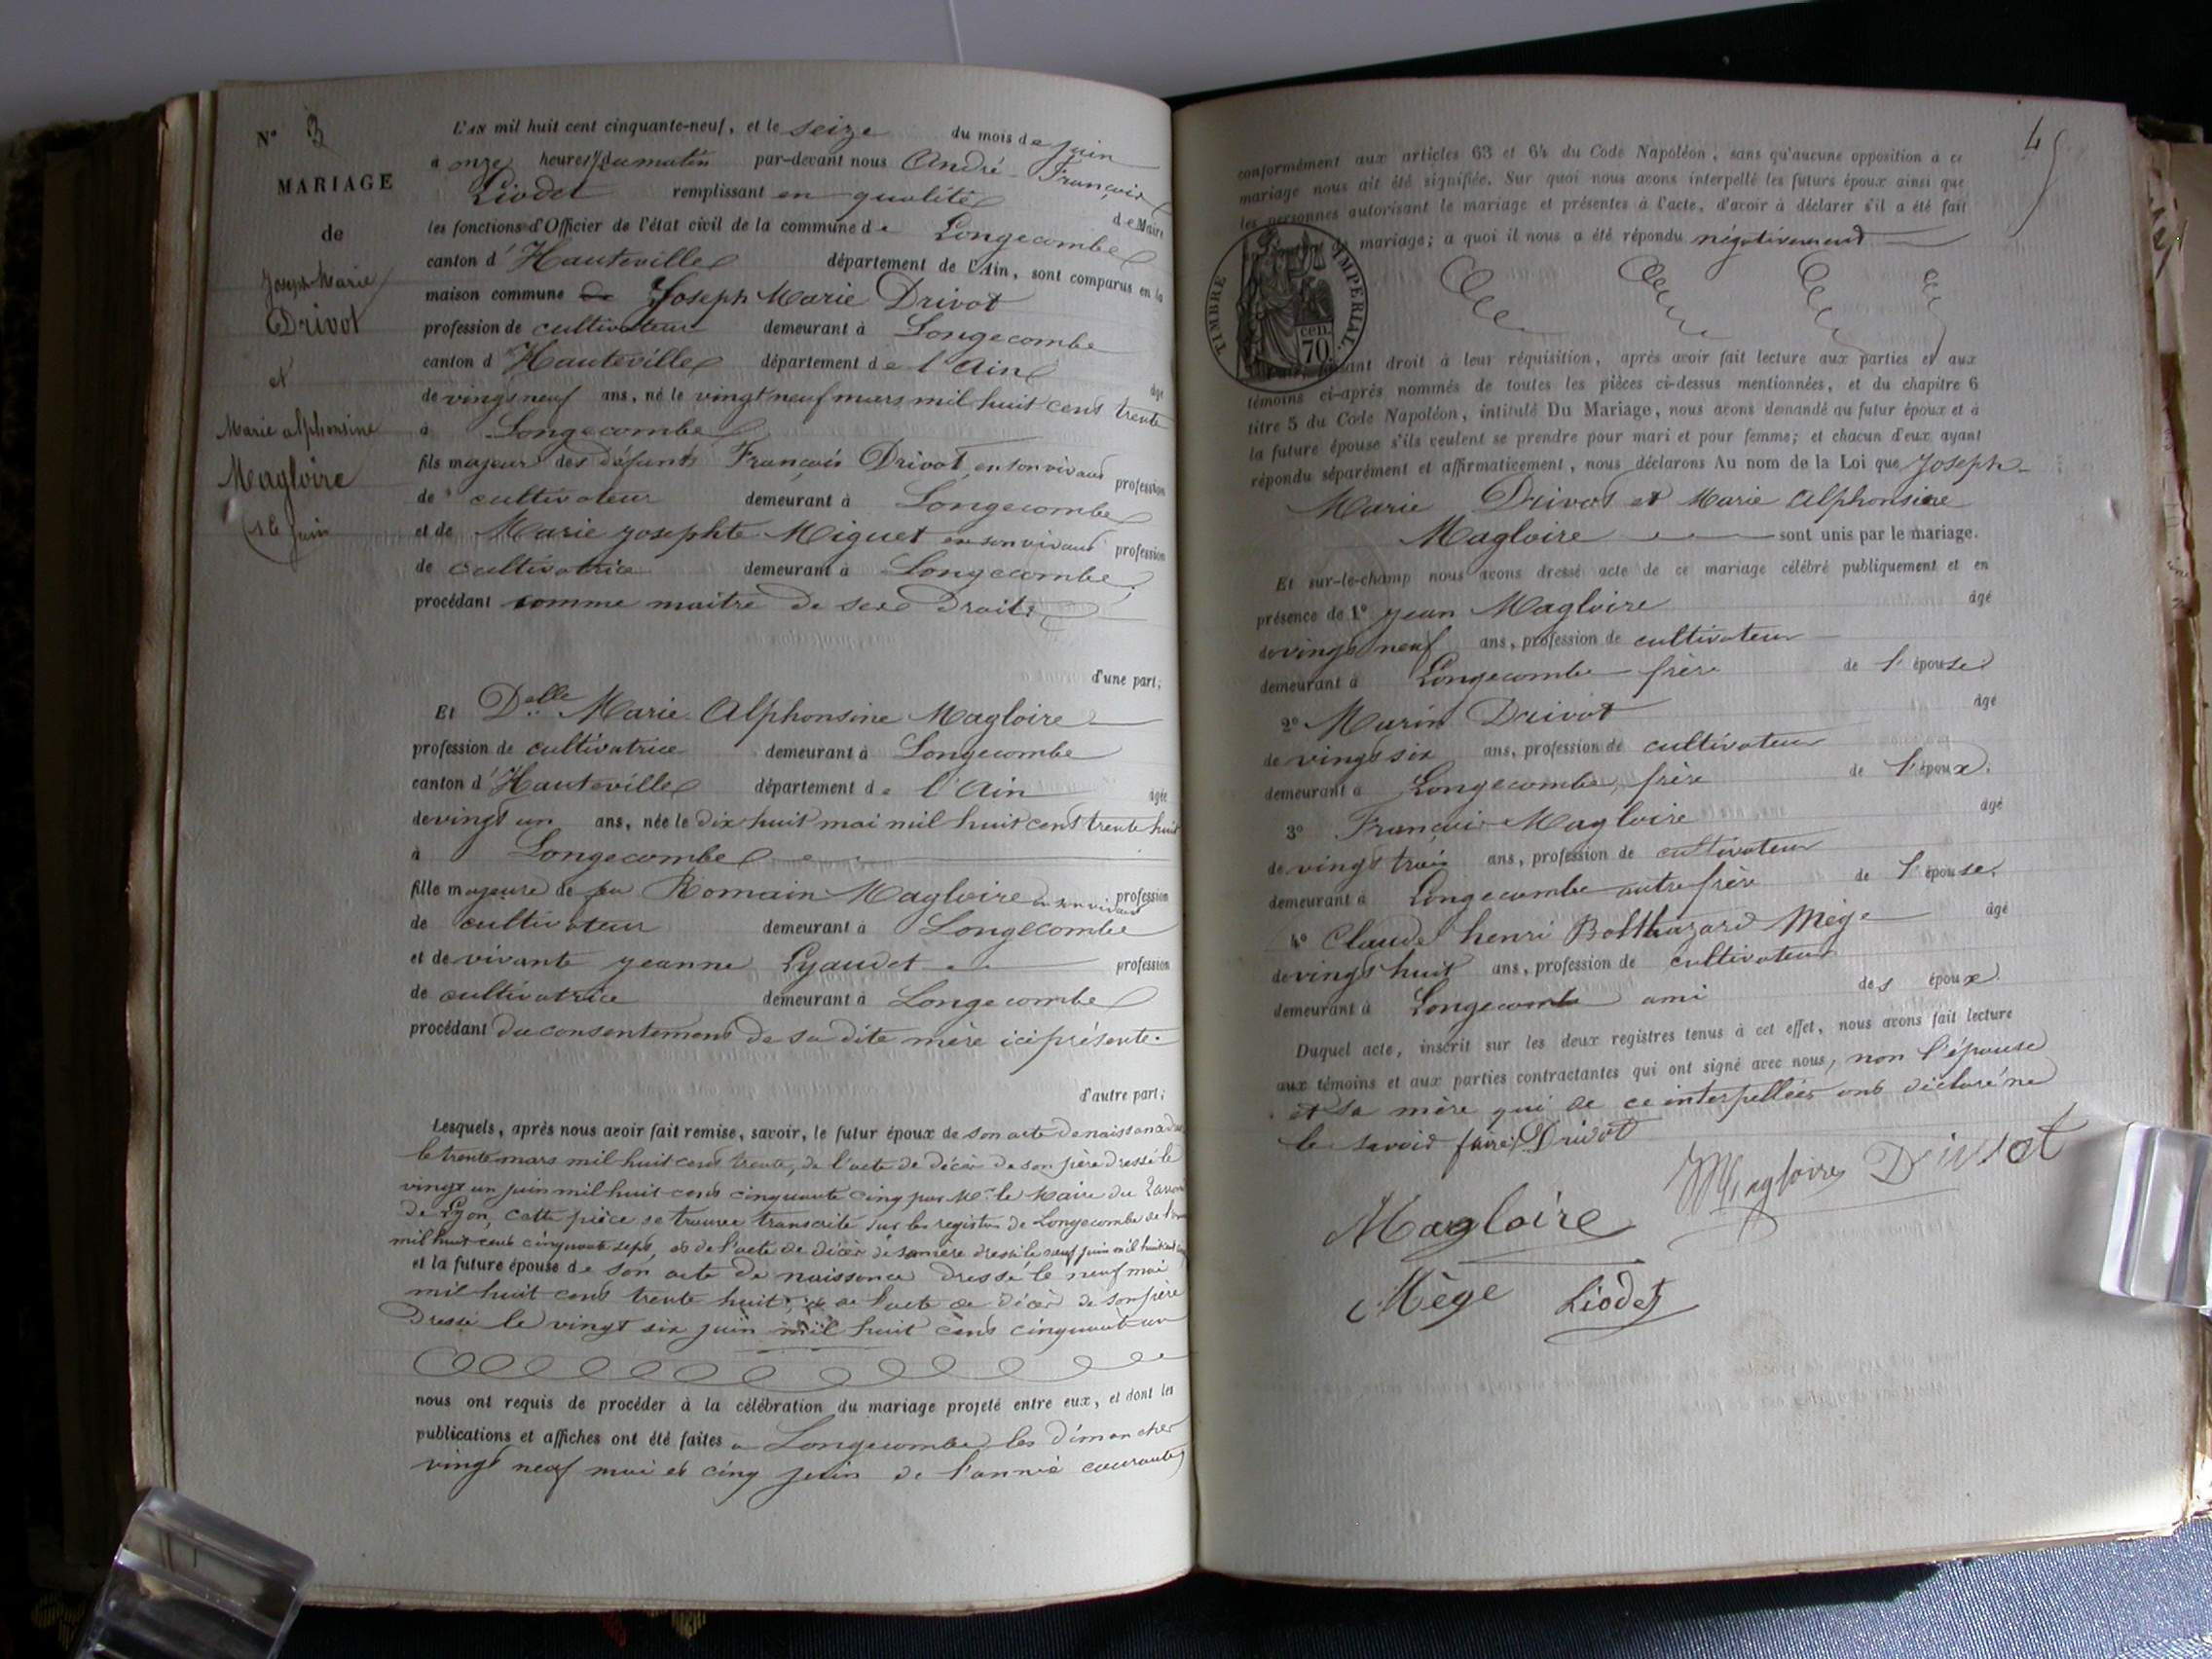 N° 3
MARIAGE
de
Joseph-Marie
Drivot
et
Marie alphonsine
Magloire
16 Juin
L'AN mil huit cent cinquante-neuf, et le seize du mois de juin
à onze heures du matin par-devant nous André-François
Liodet remplissant en qualité de Maire
les fonctions d'Officier de l'état civil de la commune de Longecombe
canton d'Hauteville département de l'Ain, sont comparus en la
maison commune de Joseph Marie Drivot
profession de cultivateur demeurant à Longecombe
canton d'Hauteville département de l'Ain âgé
de vingt neuf ans, né le vingt neuf mars mil huit cent trente
à Longecombe
fils majeur des défunts François Drivot en son vivant profession
de cultivateur demeurant à Longecombe
et de Marie josephte Miguet en son vivant profession
de cultivatrice demeurant à Longecombe
procédant comme maitre de ses droits
d'une part;
Et Delle Marie Alphonsine Magloire
profession de cultivatrice demeurant à Longecombe
canton d'Hauteville département de l'Ain âgée
de vingt un ans, née le dix huit mai mil huit cent trente huit
à Longecombe
fille majeure de feu Romain Magloire en son vivant profession
de cultivateur demeurant à Longecombe
et de vivante jeanne Lyaudet profession
de cultivatrice demeurant à Longecombe
procédant du consentement de sa dite mère ici présente.
d'autre part;
Lesquels, après nous avoir fait remise, savoir, le futur époux de son acte de naissance du
le trente mars mil huit cent trente, de l'acte de décès de son père dressé le
vingt un juin mil huit cent cinquante cinq par Mr. le Maire du
de Lyon, cette pièce se trouve transcrite sur les registres de Longecombe de
mil huit cent cinquante sept, et de l'acte de décès de sa mère dressé le neuf juin mil huit cent
et la future épouse de son acte de naissance dressé le neuf mai
mil huit cent trente huit, et de l'acte de décès de son père
dressé le vingt six juin mil huit cent cinquante un
nous ont requis de procéder à la célébration du mariage projeté entre eux, et dont les
publications et affiches ont été faites à Longecombe les dimanches
vingt neuf mai et cinq juin de l'année courante
conformément aux articles 63 et 64 du Code Napoléon, sans qu'aucune opposition à ce
mariage nous ait été signifiée. Sur quoi nous avons interpellé les futurs époux ainsi que
les personnes autorisant le mariage et présentes à l'acte, d'avoir à déclarer s'il a été fait
de mariage; a quoi il nous a été répondu négativement
TIMBRE IMPERIAL.
70 cen.
droit à leur réquisition, après avoir fait lecture aux parties et aux
témoins ci-après nommés de toutes les pièces ci-dessus mentionnées, et du chapitre 6
titre 5 du Code Napoléon, intitulé Du Mariage, nous avons demandé au futur époux et à
la future épouse s'ils veulent se prendre pour mari et pour femme; et chacun d'eux ayant
répondu séparément et affirmativement, nous déclarons Au nom de la Loi que Joseph-
Marie Drivot et Marie Alphonsine
Magloire sont unis par le mariage.
Et sur-le-champ nous avons dressé acte de ce mariage célébré publiquement et en
présence de 1° jean Magloire âgé
de vingt neuf ans, profession de cultivateur
demeurant à Longecombe frère de l'épouse
2° Marin Drivot âgé
de vingt six ans, profession de cultivateur
demeurant à Longecombe, frère de l'époux.
3° François Magloire âgé
de vingt trois ans, profession de cultivateur
demeurant à Longecombe autre frère de l'épouse.
4° Claude henri Balthazard Mège âgé
de vingt huit ans, profession de cultivateur
demeurant à Longecombe ami des époux.
Duquel acte, inscrit sur les deux registres tenus à cet effet, nous avons fait lecture
aux témoins et aux parties contractantes qui ont signé avec nous, non l'épouse
et sa mère qui de ce interpellées ont déclaré ne
le savoir faire. Drivot
Magloire Drivot
Magloire
Mège Liodet